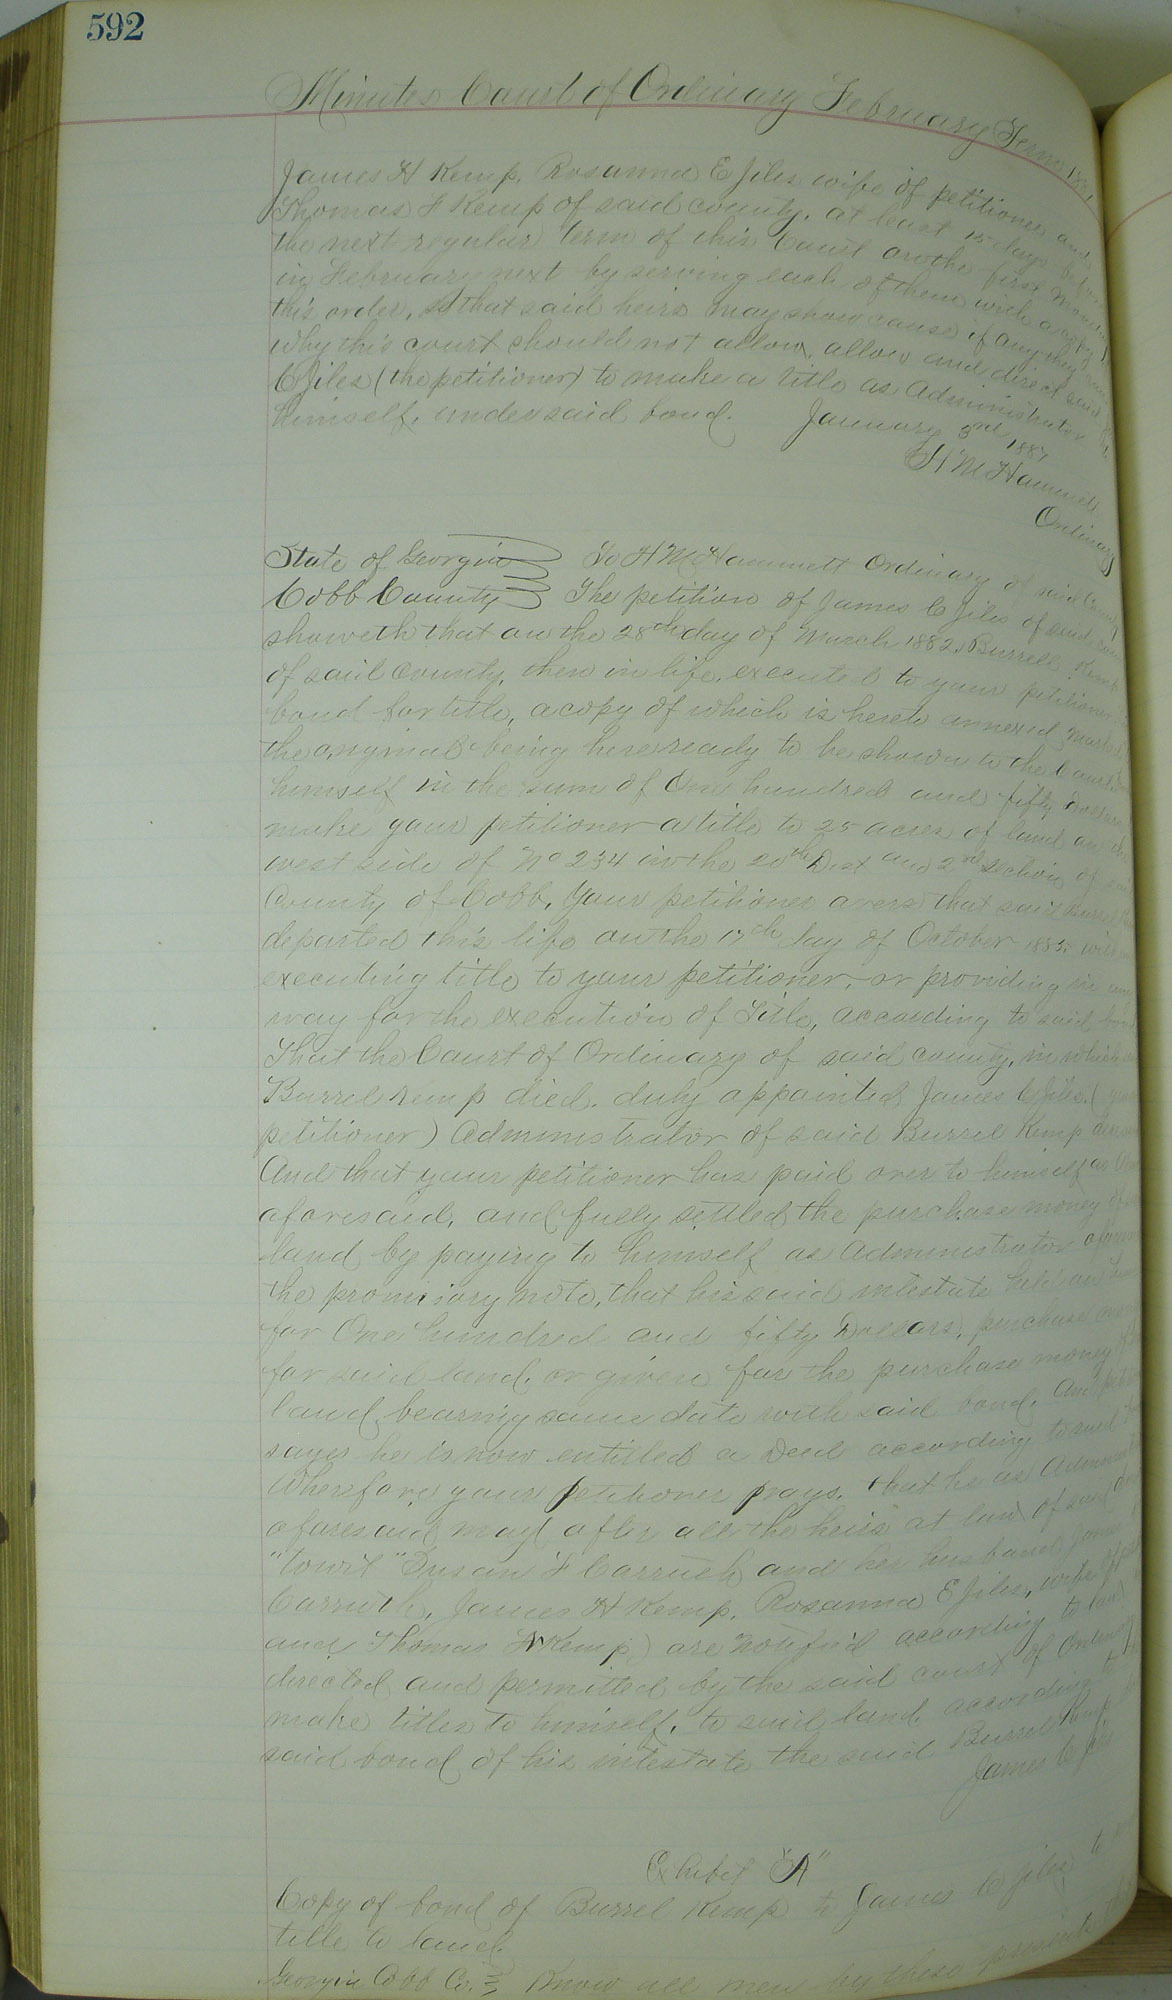 592
Minutes Court of Ordinary February Term
James H Kemp, Rosanna E Jiles wife of petitioner and
Thomas F Kemp of said county, at least 15 days before
the next regular term of this Court on the first Monday
in February next by serving each of them with a copy of
this order, so that said heirs may show cause if any they
why this court should not allow, allow and direct said
C Jiles (the petitioner) to make a title as Administrator
himself, under said bond. January 3rd 1887
H M Hammett
Ordinary
State of Georgia To H M Hammett Ordinary of said County
Cobb County The petition of James C Jiles of said
showeth that on the 28th day of March 1882, Burrell Kemp
of said County, then in life, executed to your petitioner
bond for title, a copy of which is hereto annexed, marked
the original being here ready to be shown to the Court,
himself in the sum of One hundred and fifty Dollars
make your petitioner a title to 25 acres of land on the
west side of No 234 in the 20th Dist and 2nd Section of
County of Cobb, Your petitioner avers that said Burrel
departed this life on the 17th day of October 1885
executing title to your petitioner, or providing in any
way for the execution of Title, according to said bond
That the Court of Ordinary of said county, in which
Burrel Kemp died, duly appointed James C Jiles, (your
petitioner) Administrator of said Burrel Kemp
And that your petitioner has paid over to himself as
aforesaid, and fully settled the purchase money
land by paying to himself as Administrator
the promisory note, that his said intestate held
for One hundred and fifty Dollars, purchase
for said land, or given for the purchase money
land, bearing same date with said bond, And
says he is now entitled a Deed according to said
Wherefore your petitioner prays, that he as
aforesaid may after all the heirs at law of said
"towit" Susan F Carruth and her husband
Carruth, James H Kemp, Rosanna E Jiles, wife of
and Thomas F Kemp) are notified according to law
directed and permitted by the said court of Ordinary
make titles to himself, to said land, according to
said bond of his intestate the said Burrel Kemp
James C Jiles
Exhibit "A"
Copy of bond of Burrel Kemp to James C Jiles to
title to land.
Georgia Cobb Co. Know all men by these presents